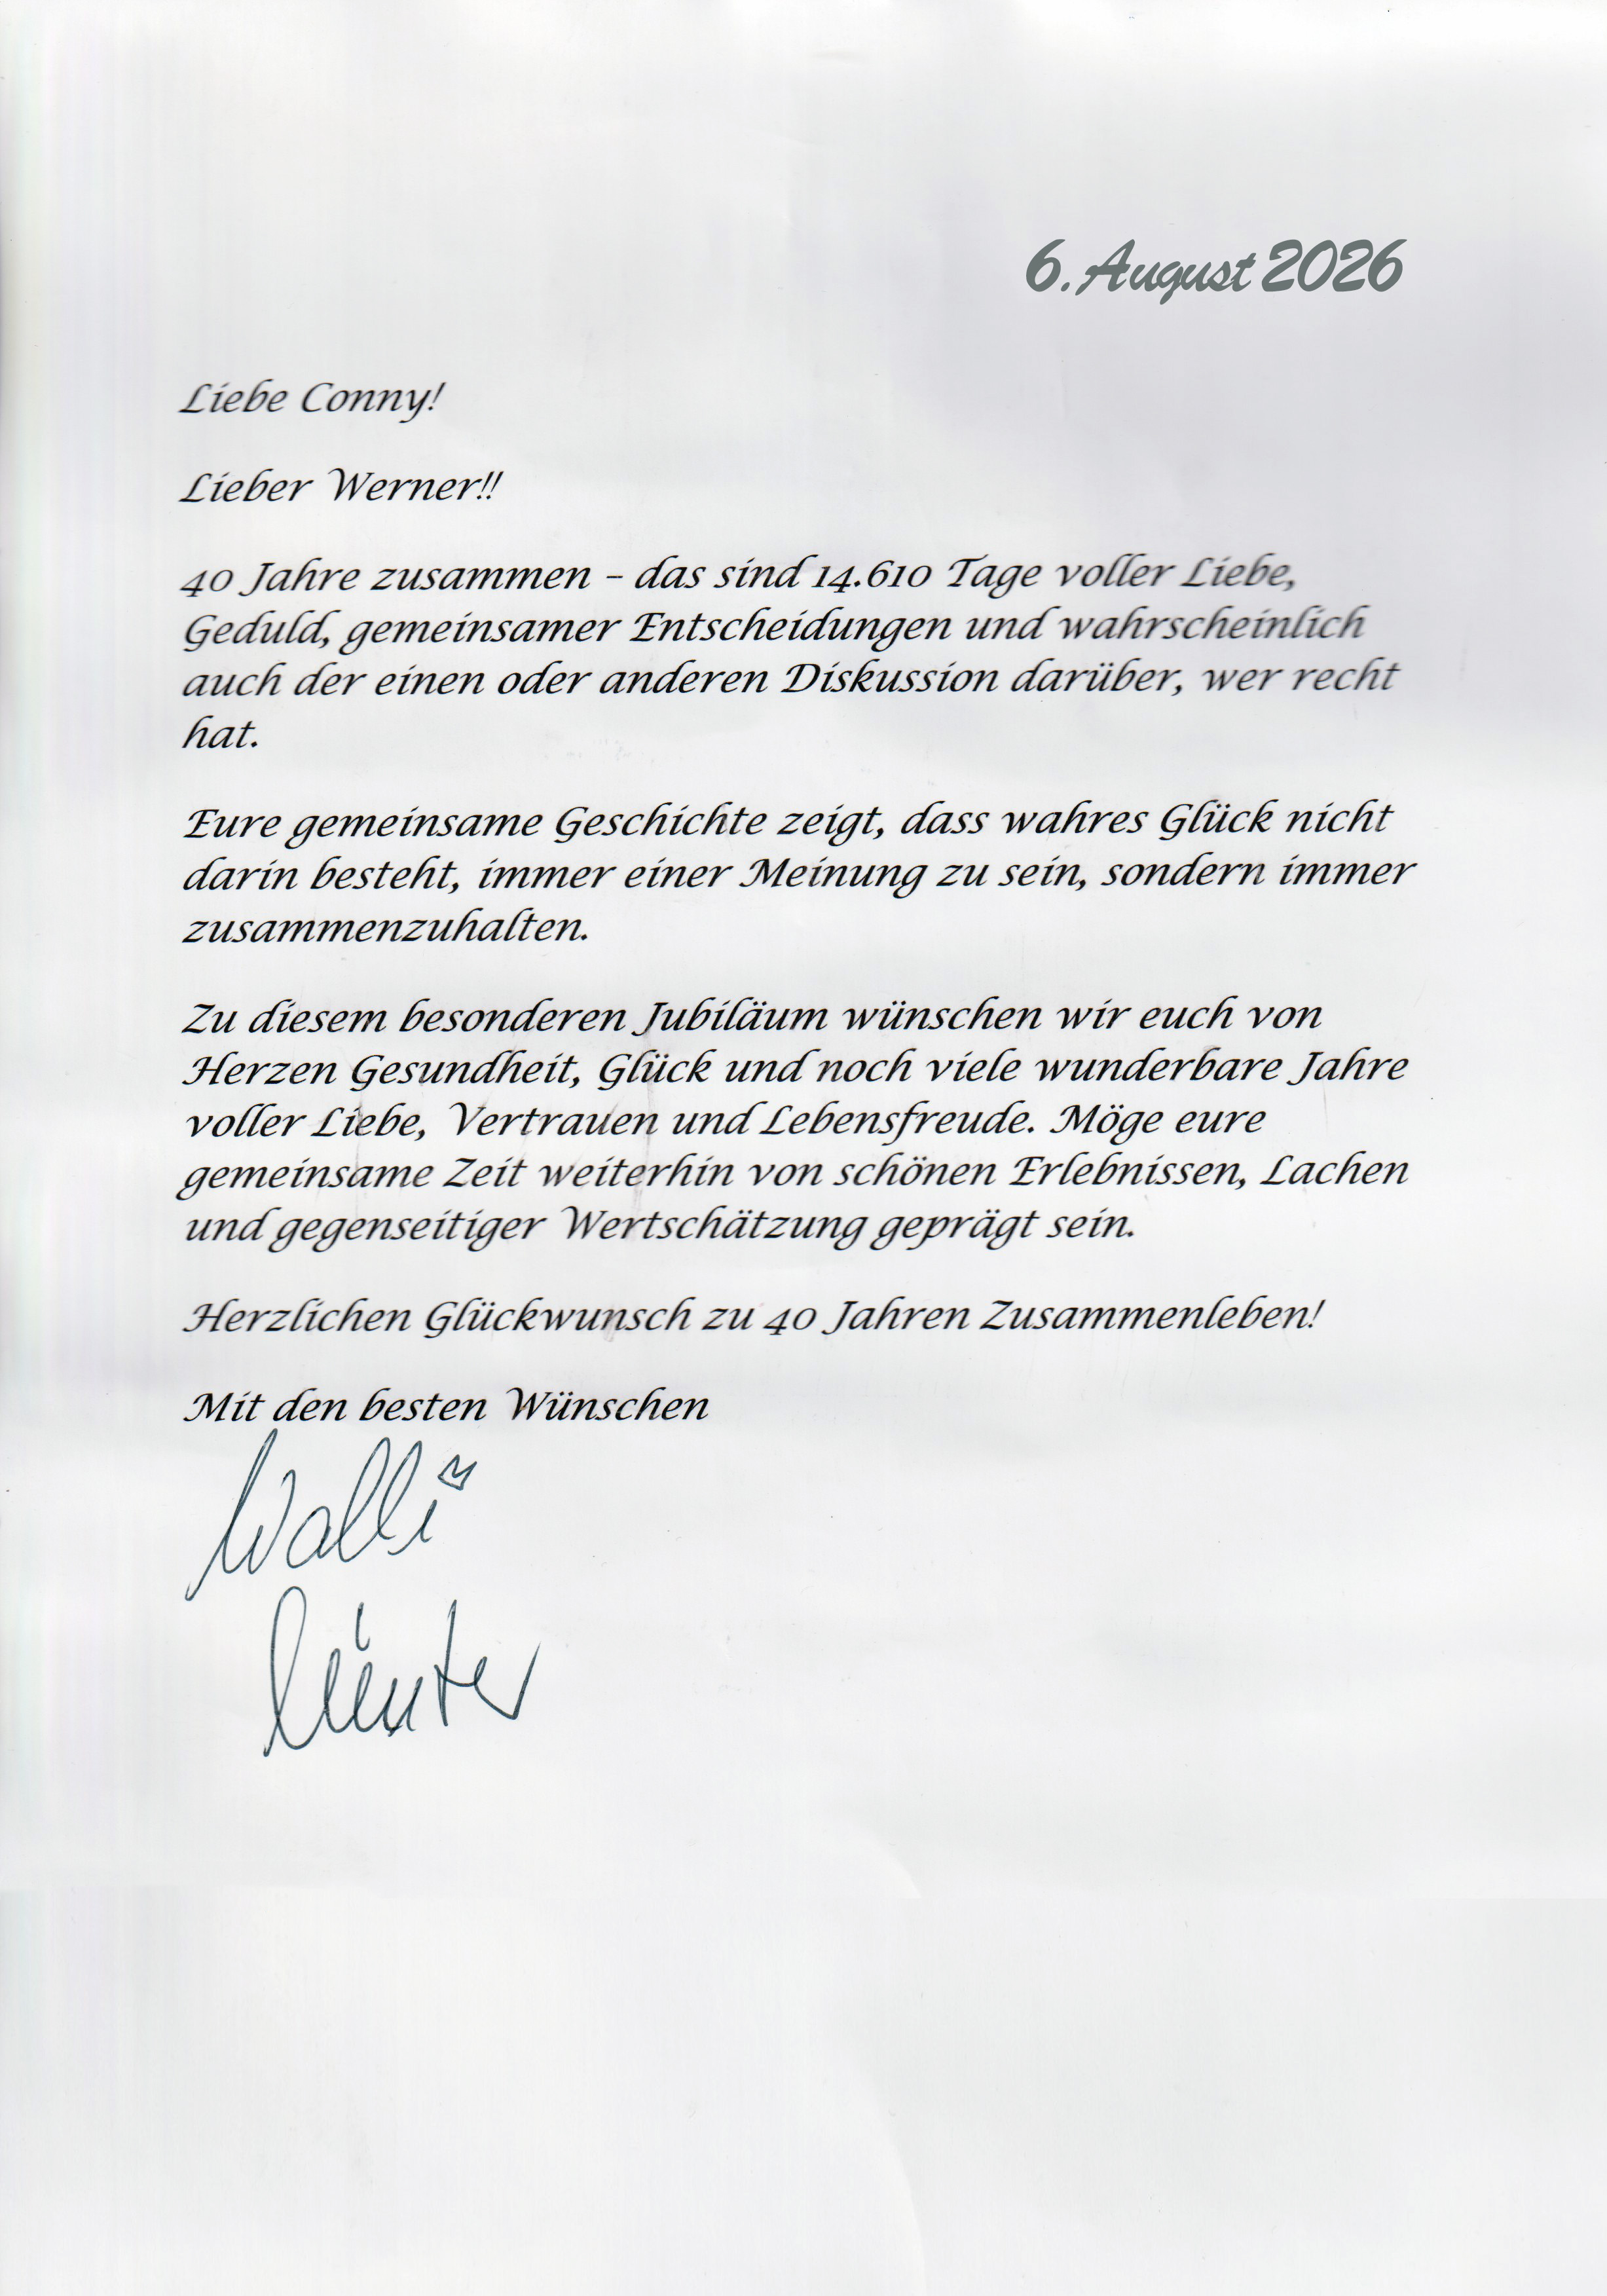 6. August 2026
Liebe Conny!
Lieber Werner!!
40 Jahre zusammen – das sind 14.610 Tage voller Liebe,
Geduld, gemeinsamer Entscheidungen und wahrscheinlich
auch der einen oder anderen Diskussion darüber, wer recht
hat.
Eure gemeinsame Geschichte zeigt, dass wahres Glück nicht
darin besteht, immer einer Meinung zu sein, sondern immer
zusammenzuhalten.
Zu diesem besonderen Jubiläum wünschen wir euch von
Herzen Gesundheit, Glück und noch viele wunderbare Jahre
voller Liebe, Vertrauen und Lebensfreude. Möge eure
gemeinsame Zeit weiterhin von schönen Erlebnissen, Lachen
und gegenseitiger Wertschätzung geprägt sein.
Herzlichen Glückwunsch zu 40 Jahren Zusammenleben!
Mit den besten Wünschen
Walli